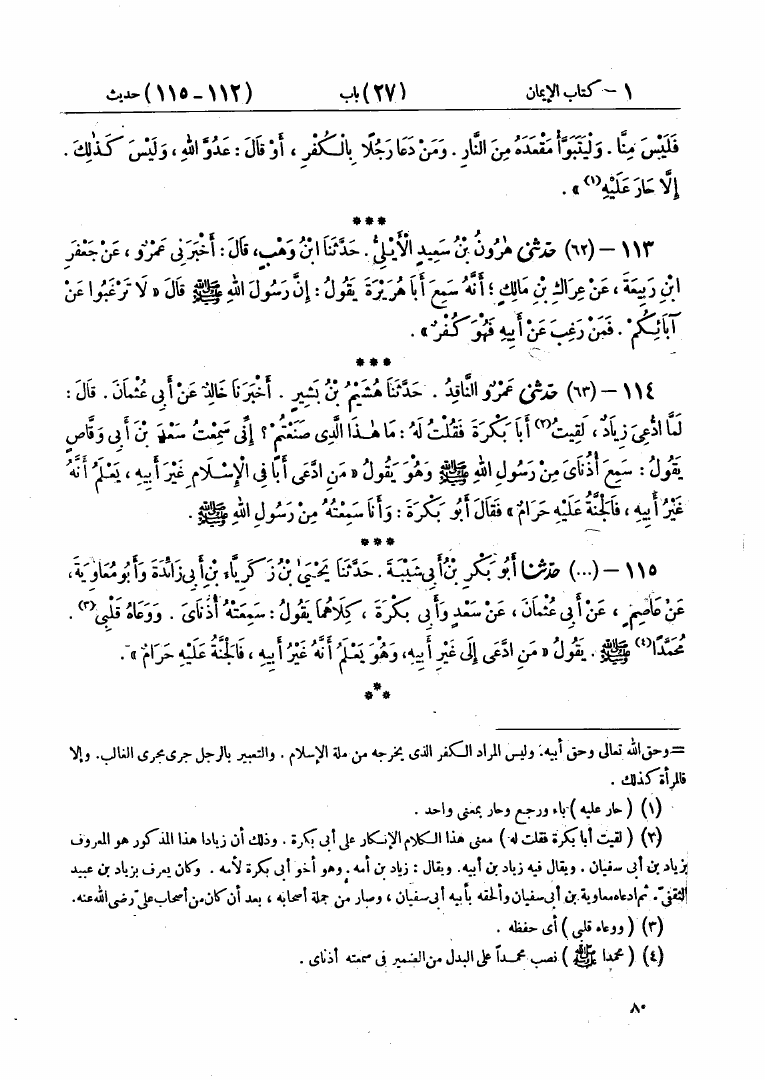 ١ – كتاب الإيمان (٢٧) باب (١١٢ – ١١٥) حديث
فَلَيْسَ مِنَّا . وَلْيَتَبَوَّأْ مَقْعَدَهُ مِنَ النَّارِ . وَمَنْ دَعَا رَجُلًا بِالْكُفْرِ ، أَوْ قَالَ : عَدُوَّ اللهِ ، وَلَيْسَ كَذٰلِكَ .
إِلَّا حَارَ عَلَيْهِ(١) » .
***
١١٣ – (٦٢) حَدَّثَنِي هٰرُونُ بْنُ سَعِيدٍ الْأَيْلِيُّ . حَدَّثَنَا ابْنُ وَهْبٍ، قَالَ : أَخْبَرَنِي عَمْرٌو ، عَنْ جَعْفَرِ
ابْنِ رَبِيعَةَ ، عَنْ عِرَاكِ بْنِ مَالِكٍ ؛ أَنَّهُ سَمِعَ أَبَا هُرَيْرَةَ يَقُولُ : إِنَّ رَسُولَ اللهِ ﷺ قَالَ « لَا تَرْغَبُوا عَنْ
آبَائِكُمْ . فَمَنْ رَغِبَ عَنْ أَبِيهِ فَهُوَ كُفْرٌ » .
***
١١٤ – (٦٣) حَدَّثَنِي عَمْرٌو النَّاقِدُ . حَدَّثَنَا هُشَيْمُ بْنُ بَشِيرٍ . أَخْبَرَنَا خَالِدٌ عَنْ أَبِي عُثْمَانَ . قَالَ :
لَمَّا ادُّعِيَ زِيَادٌ ، لَقِيتُ(٢) أَبَا بَكْرَةَ فَقُلْتُ لَهُ : مَا هٰذَا الَّذِي صَنَعْتُمْ ؟ إِنِّي سَمِعْتُ سَعْدَ بْنَ أَبِي وَقَّاصٍ
يَقُولُ : سَمِعَ أُذُنَايَ مِنْ رَسُولِ اللهِ ﷺ وَهُوَ يَقُولُ « مَنِ ادَّعَى أَبًا فِي الْإِسْلَامِ غَيْرَ أَبِيهِ ، يَعْلَمُ أَنَّهُ
غَيْرُ أَبِيهِ ، فَالْجَنَّةُ عَلَيْهِ حَرَامٌ » فَقَالَ أَبُو بَكْرَةَ : وَأَنَا سَمِعْتُهُ مِنْ رَسُولِ اللهِ ﷺ .
***
١١٥ – (...) حَدَّثَنَا أَبُو بَكْرِ بْنُ أَبِي شَيْبَةَ . حَدَّثَنَا يَحْيَىٰ بْنُ زَكَرِيَّاءَ بْنِ أَبِي زَائِدَةَ وَأَبُو مُعَاوِيَةَ ،
عَنْ عَاصِمٍ ، عَنْ أَبِي عُثْمَانَ ، عَنْ سَعْدٍ وَأَبِي بَكْرَةَ ، كِلَاهُمَا يَقُولُ : سَمِعَتْهُ أُذُنَايَ . وَوَعَاهُ قَلْبِي(٣) .
مُحَمَّدًا(٤) ﷺ . يَقُولُ « مَنِ ادَّعَى إِلَى غَيْرِ أَبِيهِ، وَهُوَ يَعْلَمُ أَنَّهُ غَيْرُ أَبِيهِ ، فَالْجَنَّةُ عَلَيْهِ حَرَامٌ » .
***
= وحق الله تعالى وحق أبيه. وليس المراد الكفر الذى يخرجه من ملة الإسلام . والتعبير بالرجل جرى مجرى الغالب. وإلا
فالمرأة كذلك .
(١) ( حار عليه ) باء ورجع وحار بمعنى واحد .
(٢) ( لقيت أبا بكرة فقلت له ) معنى هذا الكلام الإنكار على أبى بكرة . وذلك أن زيادا هذا المذكور هو المعروف
بزياد بن أبى سفيان . ويقال فيه زياد بن أبيه. ويقال : زياد بن أمه . وهو أخو أبى بكرة لأمه . وكان يعرف بزياد بن عبيد
الثقفىّ. ثم ادعاه معاوية بن أبى سفيان وألحقه بأبيه أبى سفيان ، وصار من جملة أصحابه ، بعد أن كان من أصحاب علىّ رضى الله عنه.
(٣) ( ووعاه قلبى ) أى حفظه .
(٤) ( محمدا ﷺ ) نصب محمداً على البدل من الضمير فى سمعته أذناى .
٨٠